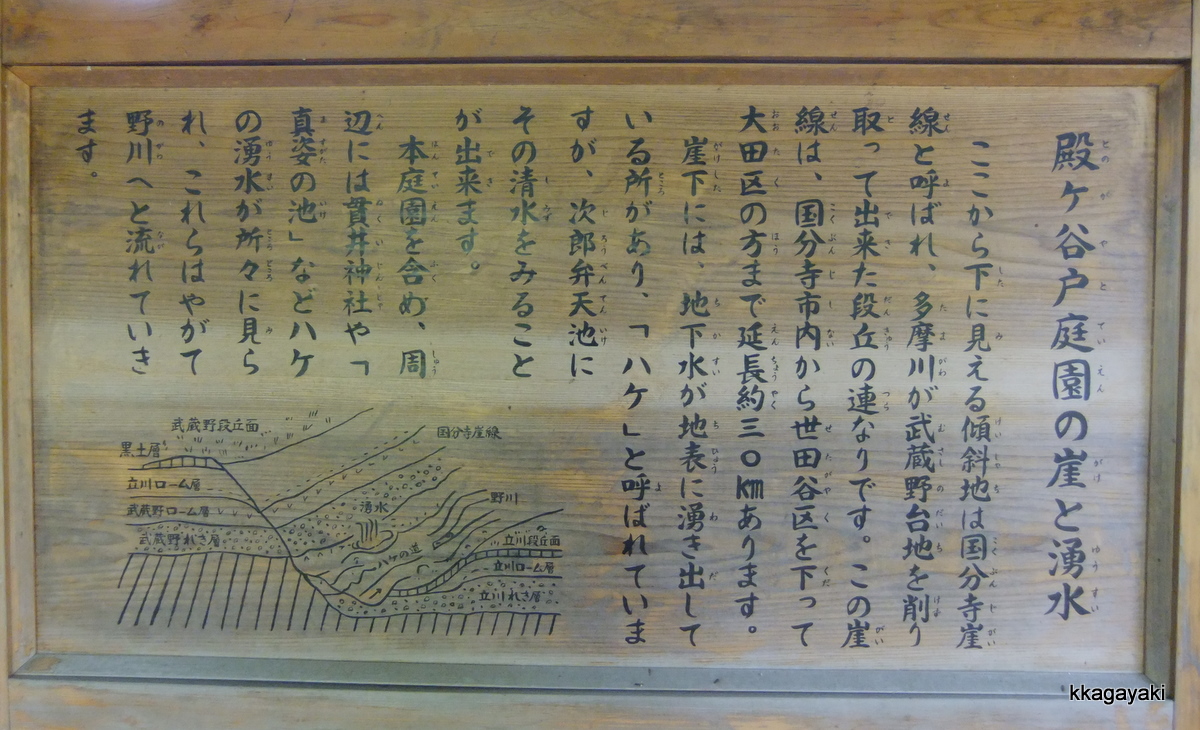 殿ヶ谷戸庭園の崖と湧水
ここから下に見える傾斜地は国分寺崖
線と呼ばれ、多摩川が武蔵野台地を削り
取って出来た段丘の連なりです。この崖
線は、国分寺市内から世田谷区を下って
大田区の方まで延長約三〇kmあります。
崖下には、地下水が地表に湧き出して
いる所があり、「ハケ」と呼ばれていま
すが、次郎弁天池に
その清水をみること
が出来ます。
本庭園を含め、周
辺には貫井神社や「
真姿の池」などハケ
の湧水が所々に見ら
れ、これらはやがて
野川へと流れていき
ます。
武蔵野段丘面
国分寺崖線
黒土層
立川ローム層
武蔵野ローム層
武蔵野れき層
湧水
野川
ハケの道
立川段丘面
立川ローム層
立川れき層
kkagayaki